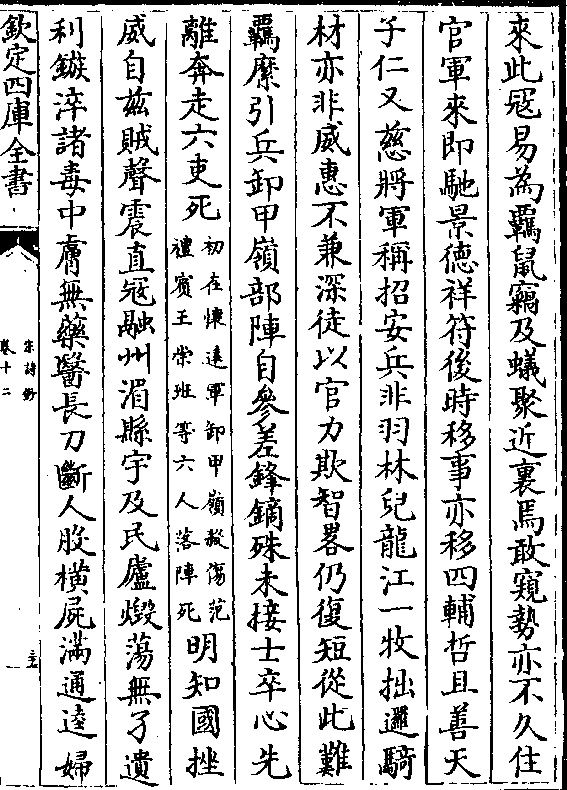 來此冦易為覊鼠竊及蟻聚近裏焉敢窺勢亦不久住
官軍來即馳景德祥符後時移事亦移四輔哲且善天
子仁又慈將軍稱招安兵非羽林兒龍江一牧拙邏騎
材亦非威惠不兼深徒以官力欺智畧仍復短從此難
覊縻引兵卸甲嶺部陣自參差鋒鏑殊未接士卒心先
離奔走六吏死初在懷逺軍卸甲嶺殺傷范禮賓王崇班等六人落陣死明知國挫
威自兹賊聲震直冦融州湄縣宇及民廬燬蕩無孑遺
利鏃淬諸毒中膚無藥醫長刀斷人股横屍滿通逵婦
欽定四庫全書
宋詩鈔
卷十二